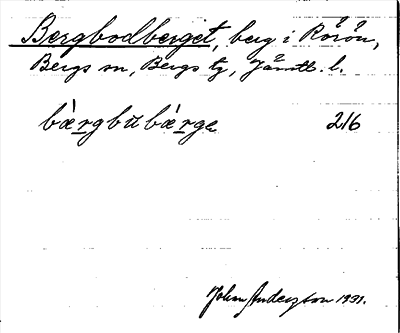 Bergbodberget, berg i Rörön,
Bergs sn, Bergs tg, Jämtl. l.
bærgbu bærge 216
John Anderzson 1931.